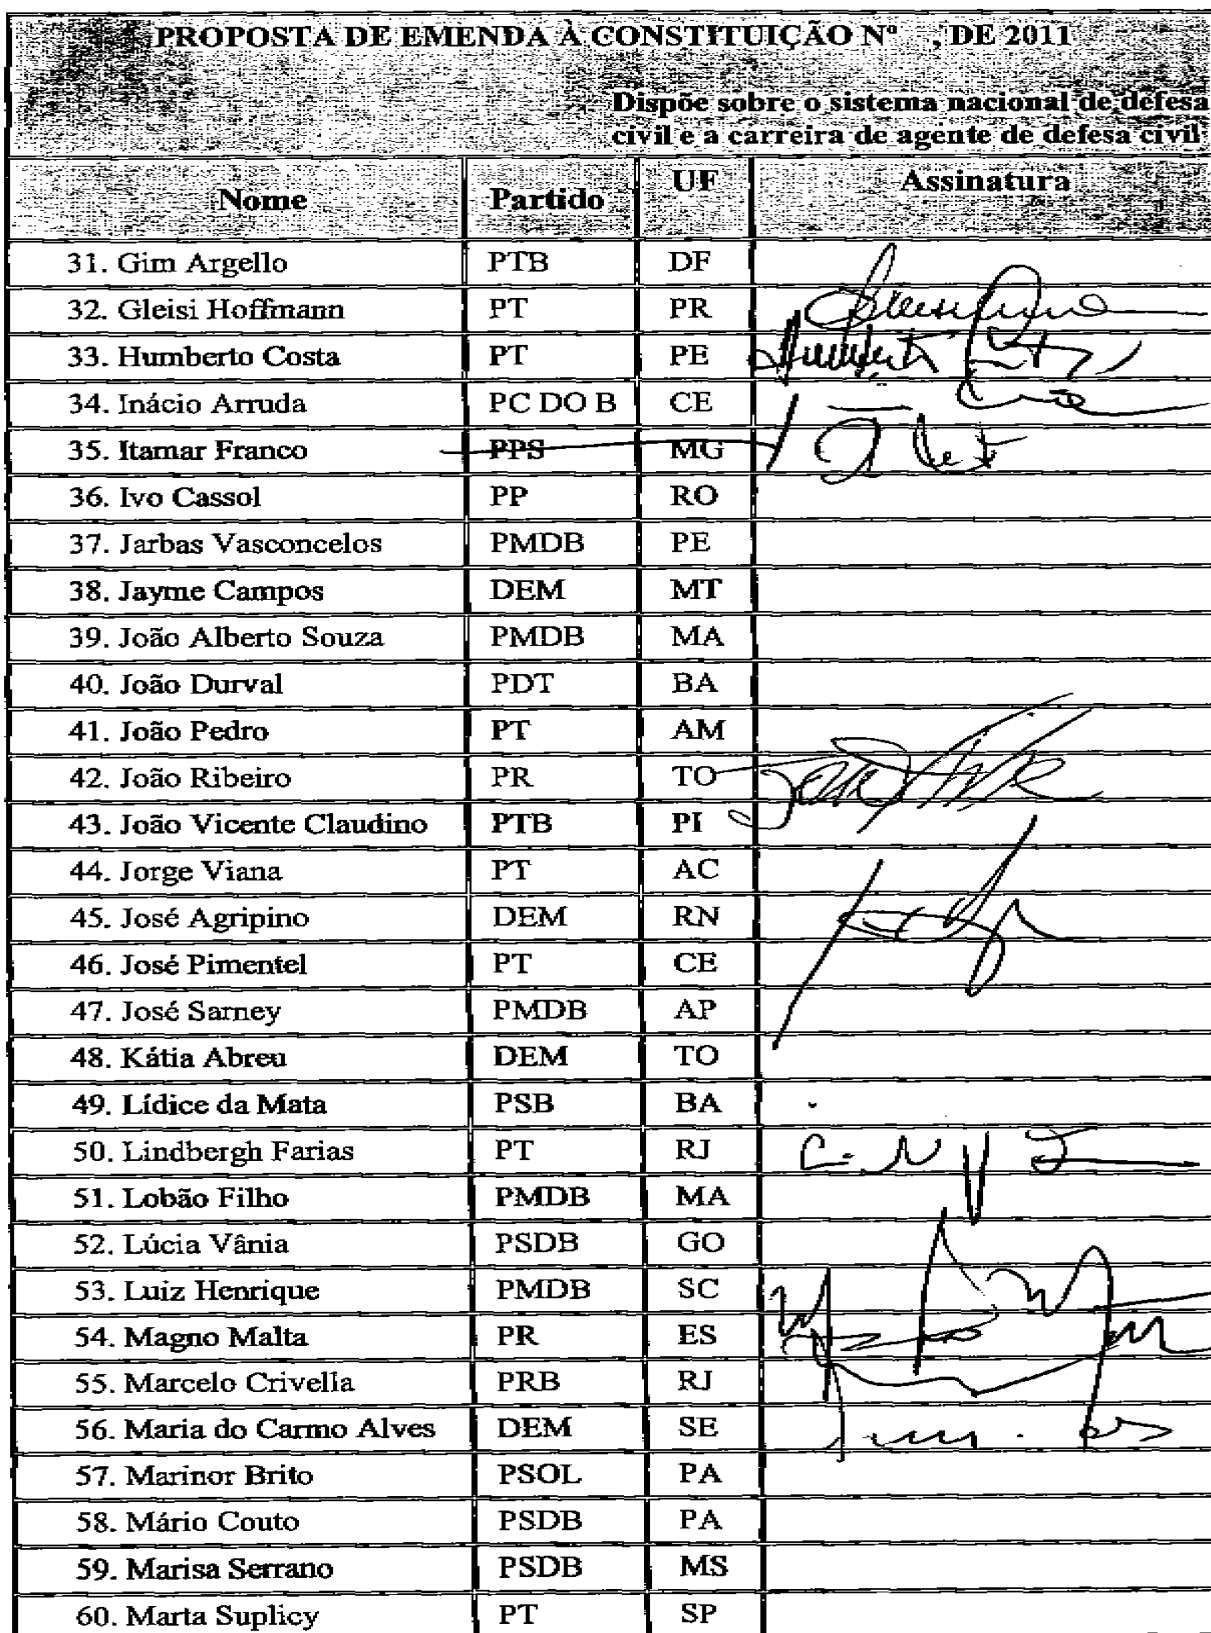 PROPOSTA DE EMENDA À CONSTITUIÇÃO Nº , DE 2011
Dispõe sobre o sistema nacional de defesa
civil e a carreira de agente de defesa civil
Nome Partido UF Assinatura
31. Gim Argello PTB DF
32. Gleisi Hoffmann PT PR
33. Humberto Costa PT PE
34. Inácio Arruda PC DO B CE
35. Itamar Franco PPS MG
36. Ivo Cassol PP RO
37. Jarbas Vasconcelos PMDB PE
38. Jayme Campos DEM MT
39. João Alberto Souza PMDB MA
40. João Durval PDT BA
41. João Pedro PT AM
42. João Ribeiro PR TO
43. João Vicente Claudino PTB PI
44. Jorge Viana PT AC
45. José Agripino DEM RN
46. José Pimentel PT CE
47. José Sarney PMDB AP
48. Kátia Abreu DEM TO
49. Lídice da Mata PSB BA
50. Lindbergh Farias PT RJ
51. Lobão Filho PMDB MA
52. Lúcia Vânia PSDB GO
53. Luiz Henrique PMDB SC
54. Magno Malta PR ES
55. Marcelo Crivella PRB RJ
56. Maria do Carmo Alves DEM SE
57. Marinor Brito PSOL PA
58. Mário Couto PSDB PA
59. Marisa Serrano PSDB MS
60. Marta Suplicy PT SP